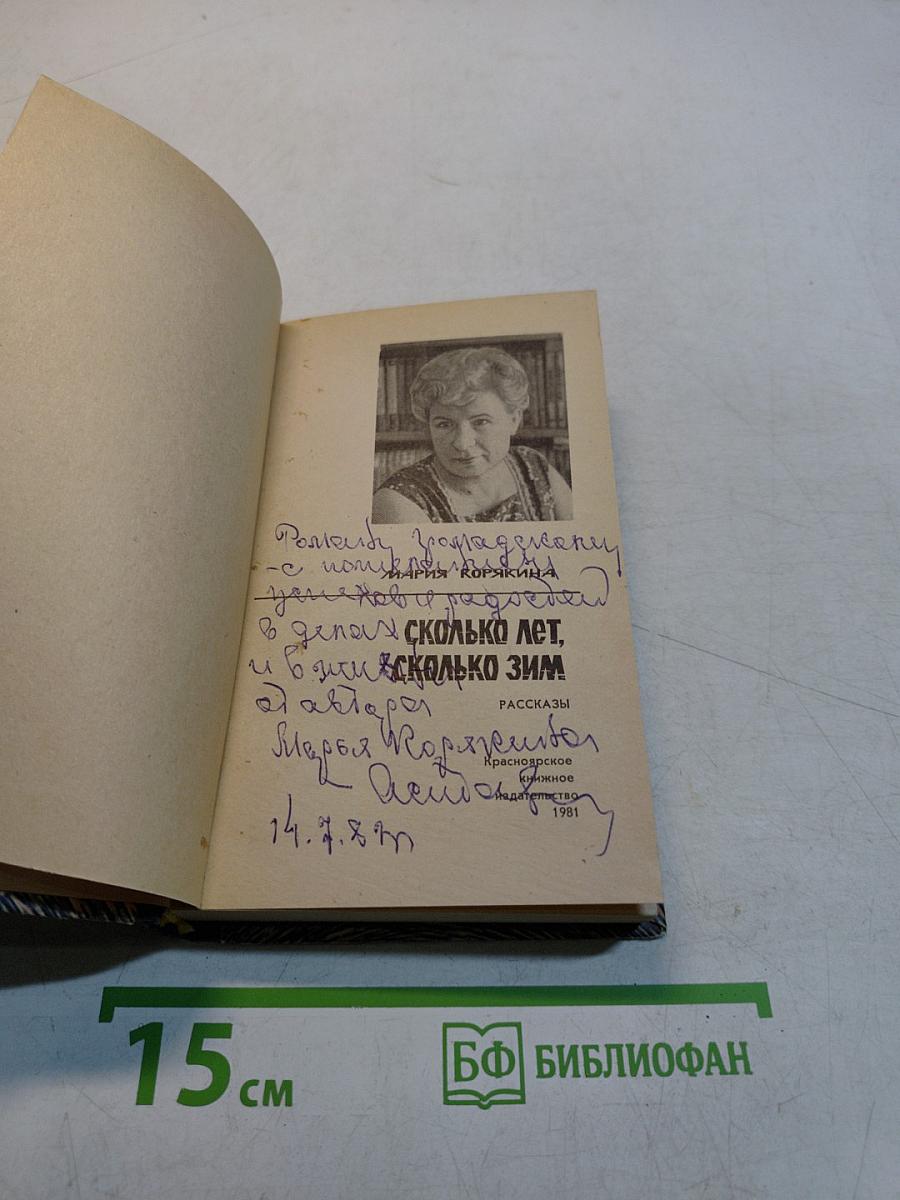 Роману Громадскому
-с пожеланием
МАРИЯ КОРЯКИНА
успехов и радостей
в делах
СКОЛЬКО ЛЕТ,
и в жизни
СКОЛЬКО ЗИМ
от автора
РАССКАЗЫ
Марья Корякина
Красноярское
книжное
издательство
1981
14.7.8
15 см
БФ БИБЛИОФАН